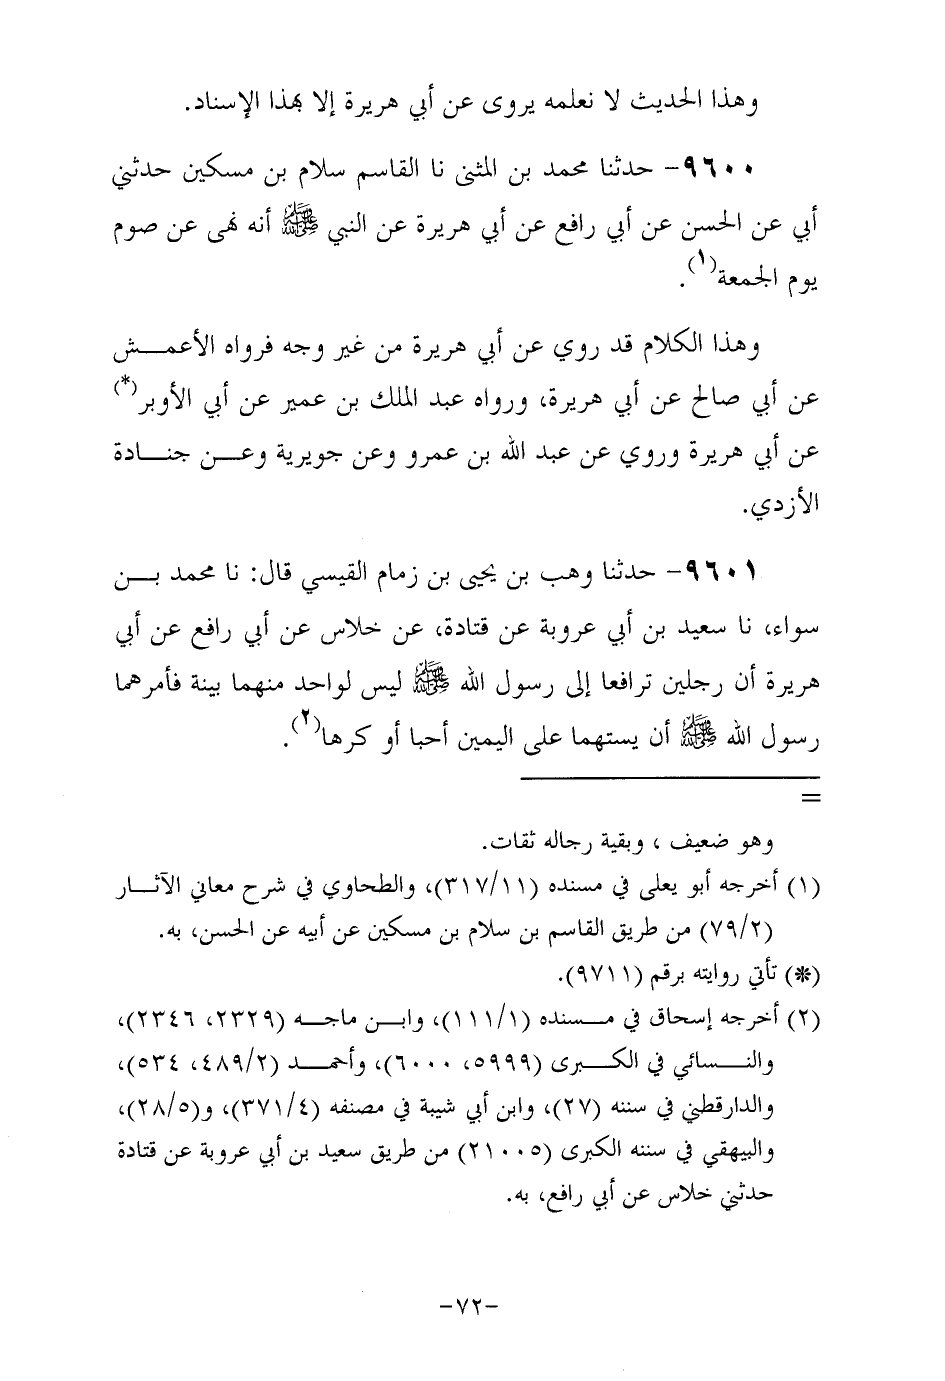 وهذا الحديث لا نعلمه يروى عن أبي هريرة إلا بهذا الإسناد.
٩٦٠٠- حدثنا محمد بن المثنى نا القاسم سلام بن مسكين حدثني
أبي عن الحسن عن أبي رافع عن أبي هريرة عن النبي ﷺ أنه نهى عن صوم
يوم الجمعة(١).
وهذا الكلام قد روي عن أبي هريرة من غير وجه فرواه الأعمش
عن أبي صالح عن أبي هريرة، ورواه عبد الملك بن عمير عن أبي الأوبر(*)
عن أبي هريرة وروي عن عبد الله بن عمرو وعن جويرية وعن جنادة
الأزدي.
٩٦٠١- حدثنا وهب بن يحيى بن زمام القيسي قال: نا محمد بن
سواء، نا سعيد بن أبي عروبة عن قتادة، عن خلاس عن أبي رافع عن أبي
هريرة أن رجلين ترافعا إلى رسول الله ﷺ ليس لواحد منهما بينة فأمرهما
رسول الله ﷺ أن يستهما على اليمين أحبا أو كرها(٢).
=
وهو ضعيف ، وبقية رجاله ثقات.
(١) أخرجه أبو يعلى في مسنده (٣١٧/١١)، والطحاوي في شرح معاني الآثار
(٧٩/٢) من طريق القاسم بن سلام بن مسكين عن أبيه عن الحسن، به.
(*) تأتي روايته برقم (٩٧١١).
(٢) أخرجه إسحاق في مسنده (١١١/١)، وابن ماجه (٢٣٢٩، ٢٣٤٦)،
والنسائي في الكبرى (٥٩٩٩، ٦٠٠٠)، وأحمد (٤٨٩/٢، ٥٣٤)،
والدارقطني في سننه (٢٧)، وابن أبي شيبة في مصنفه (٣٧١/٤)، و(٢٨/٥)،
والبيهقي في سننه الكبرى (٢١٠٠٥) من طريق سعيد بن أبي عروبة عن قتادة
حدثني خلاس عن أبي رافع، به.
-٧٢-